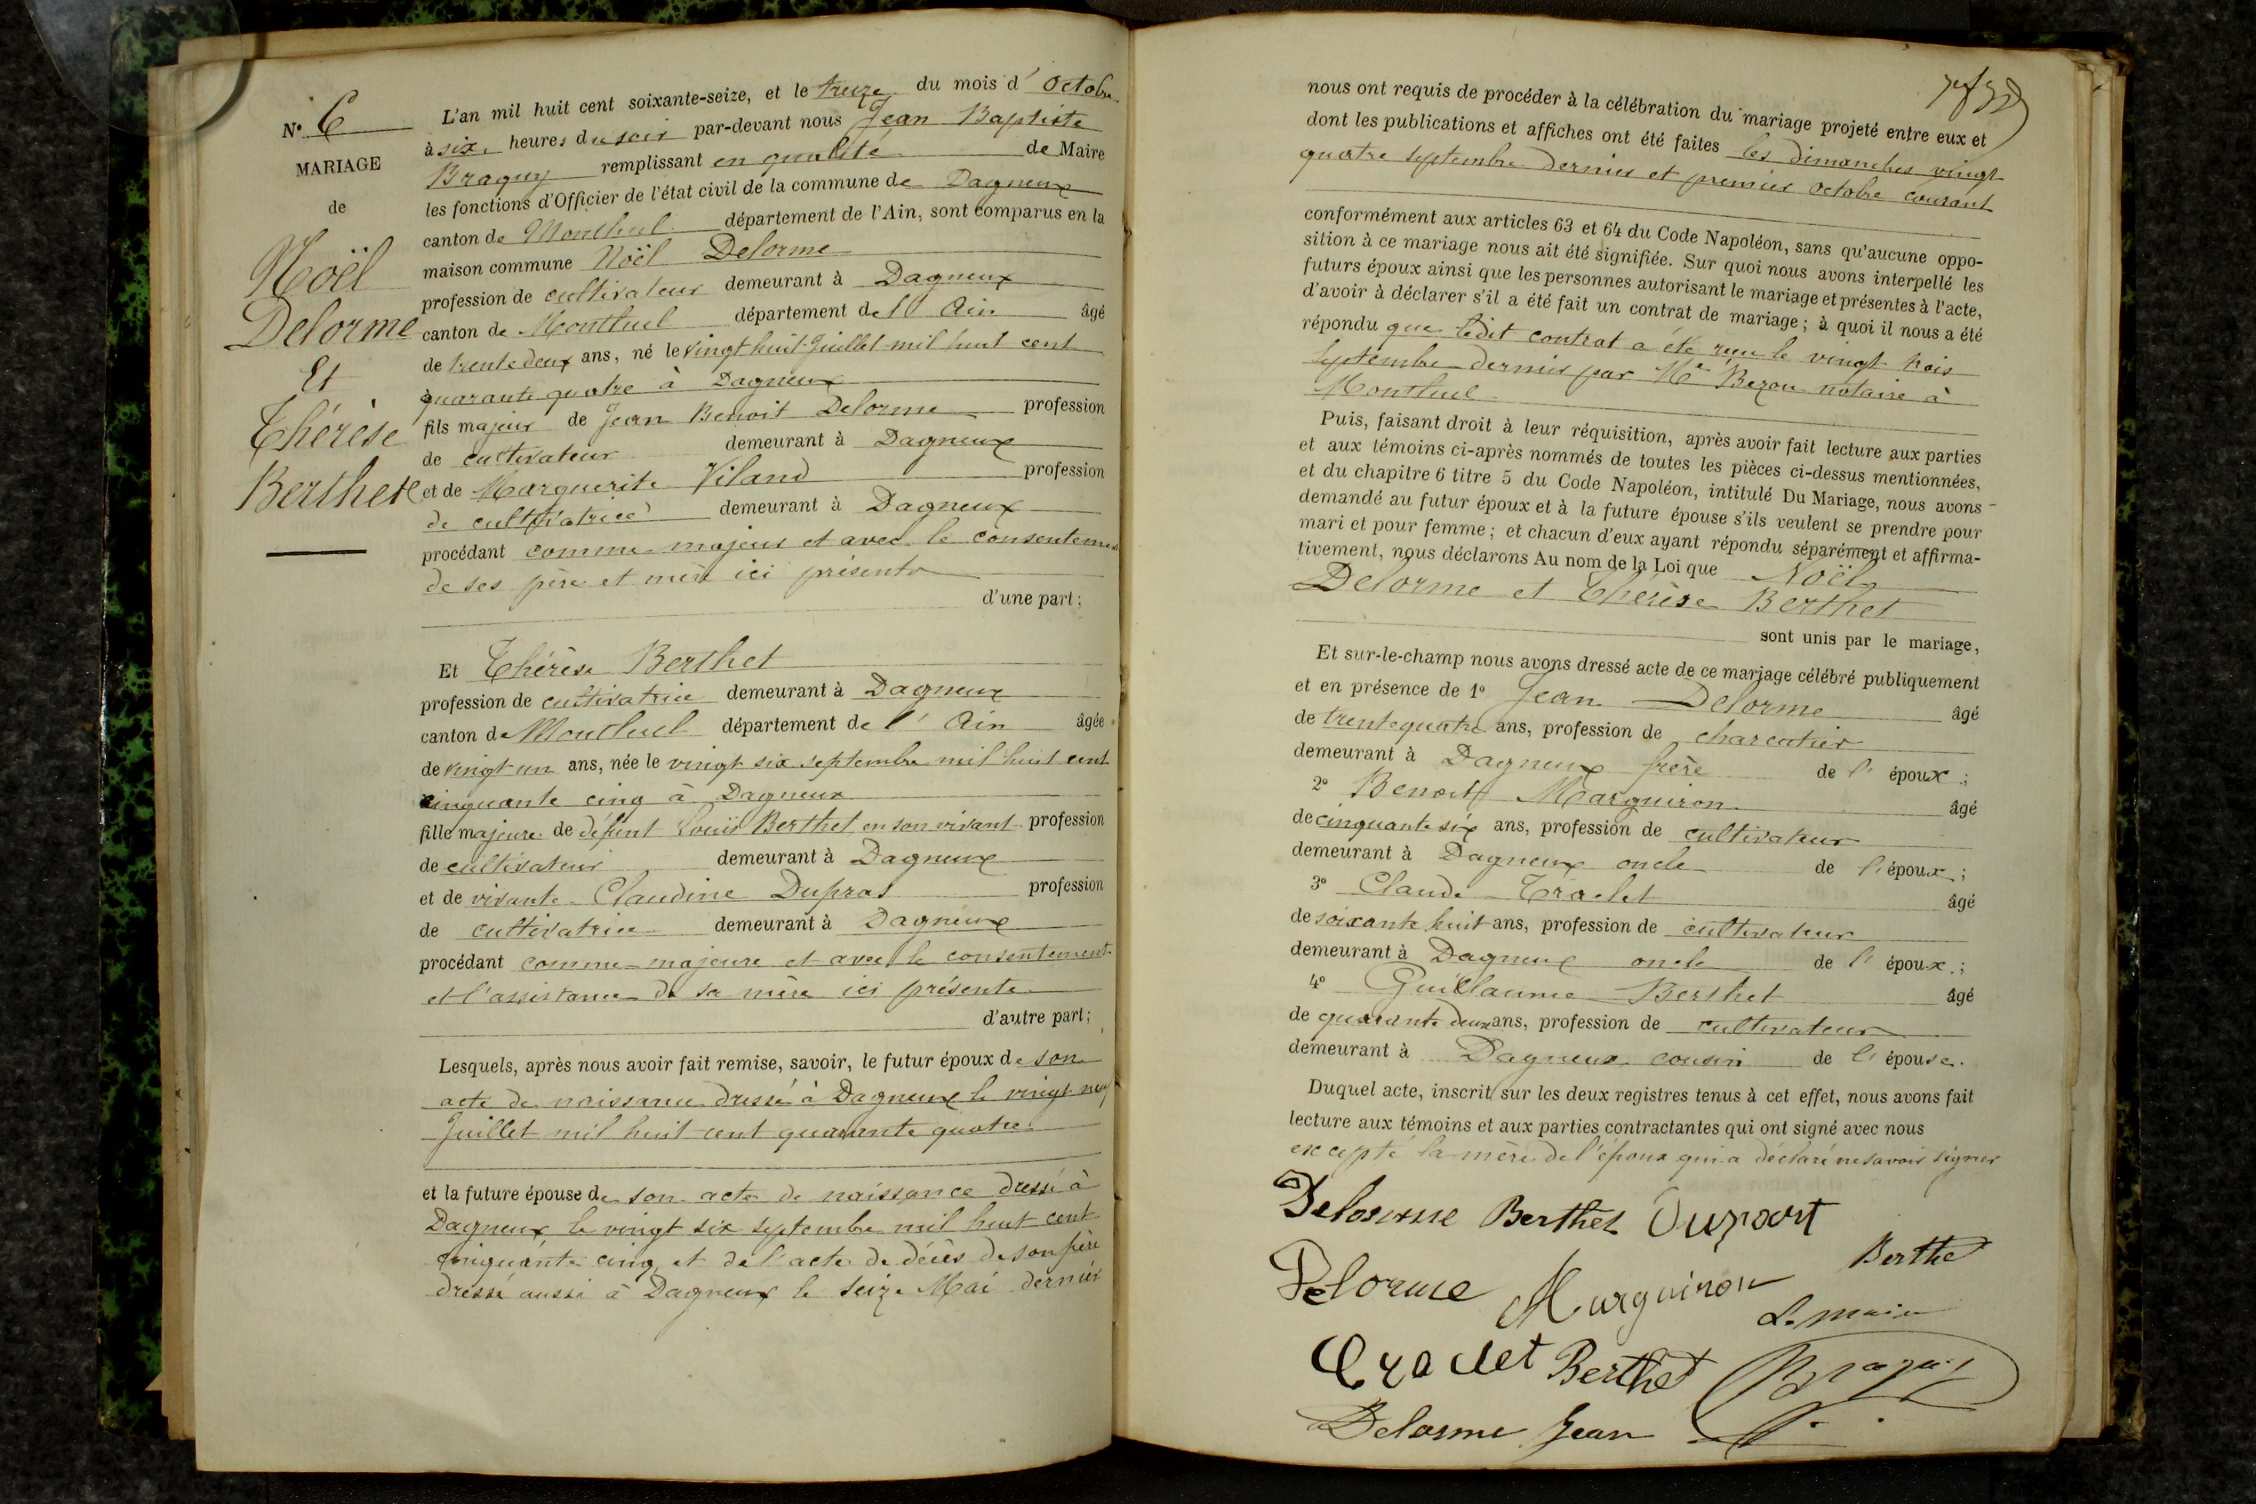 N° 6
MARIAGE
de
Noël
Delorme
Et
Thérèse
Berthet
L'an mil huit cent soixante-seize, et le treize du mois d'Octobre
à six heures du soir par-devant nous Jean Baptiste
Braguy remplissant en qualité de Maire
les fonctions d'Officier de l'état civil de la commune de Dagneux
canton de Montluel département de l'Ain, sont comparus en la
maison commune Noël Delorme
profession de cultivateur demeurant à Dagneux
canton de Montluel département de l'Ain âgé
de trente deux ans, né le vingt huit Juillet mil huit cent
quarante quatre à Dagneux
fils majeur de Jean Benoit Delorme profession
de cultivateur demeurant à Dagneux
et de Marguerite Viland profession
de cultivatrice demeurant à Dagneux
procédant comme majeur et avec le consentement
de ses père et mère ici présents
d'une part;
Et Thérèse Berthet
profession de cultivatrice demeurant à Dagneux
canton de Montluel département de l'Ain âgée
de vingt un ans, née le vingt six septembre mil huit cent
cinquante cinq à Dagneux
fille majeure de défunt Louis Berthet en son vivant profession
de cultivateur demeurant à Dagneux
et de vivante Claudine Dupras profession
de cultivatrice demeurant à Dagneux
procédant comme majeure et avec le consentement
et l'assistance de sa mère ici présente
d'autre part;
Lesquels, après nous avoir fait remise, savoir, le futur époux de son
acte de naissance dressé à Dagneux le vingt neuf
Juillet mil huit cent quarante quatre
et la future épouse de son acte de naissance dressé à
Dagneux le vingt six septembre mil huit cent
cinquante cinq et de l'acte de décès de son père
dressé aussi à Dagneux le seize Mai dernier
nous ont requis de procéder à la célébration du mariage projeté entre eux et
dont les publications et affiches ont été faites les dimanches vingt
quatre septembre dernier et premier octobre courant
conformément aux articles 63 et 64 du Code Napoléon, sans qu'aucune oppo-
sition à ce mariage nous ait été signifiée. Sur quoi nous avons interpellé les
futurs époux ainsi que les personnes autorisant le mariage et présentes à l'acte,
d'avoir à déclarer s'il a été fait un contrat de mariage; à quoi il nous a été
répondu que ledit contrat a été reçu le vingt trois
septembre dernier par Me Bezou notaire à
Montluel
Puis, faisant droit à leur réquisition, après avoir fait lecture aux parties
et aux témoins ci-après nommés de toutes les pièces ci-dessus mentionnées,
et du chapitre 6 titre 5 du Code Napoléon, intitulé Du Mariage, nous avons
demandé au futur époux et à la future épouse s'ils veulent se prendre pour
mari et pour femme; et chacun d'eux ayant répondu séparément et affirma-
tivement, nous déclarons Au nom de la Loi que Noël
Delorme et Thérèse Berthet
sont unis par le mariage,
Et sur-le-champ nous avons dressé acte de ce mariage célébré publiquement
et en présence de 1° Jean Delorme âgé
de trente quatre ans, profession de charcutier
demeurant à Dagneux frère de l'époux;
2° Benoit Marguiron âgé
de cinquante six ans, profession de cultivateur
demeurant à Dagneux oncle de l'époux;
3° Claude Traclet âgé
de soixante huit ans, profession de cultivateur
demeurant à Dagneux oncle de l'époux;
4° Guillaume Berthet âgé
de quarante deux ans, profession de cultivateur
demeurant à Dagneux cousin de l'épouse.
Duquel acte, inscrit sur les deux registres tenus à cet effet, nous avons fait
lecture aux témoins et aux parties contractantes qui ont signé avec nous
excepté la mère de l'époux qui a déclaré ne savoir signer
Delorme Berthet Dupart
Delorme Marguiron Berthet
Le maire
Traclet Berthet Braguy
Delorme Jean